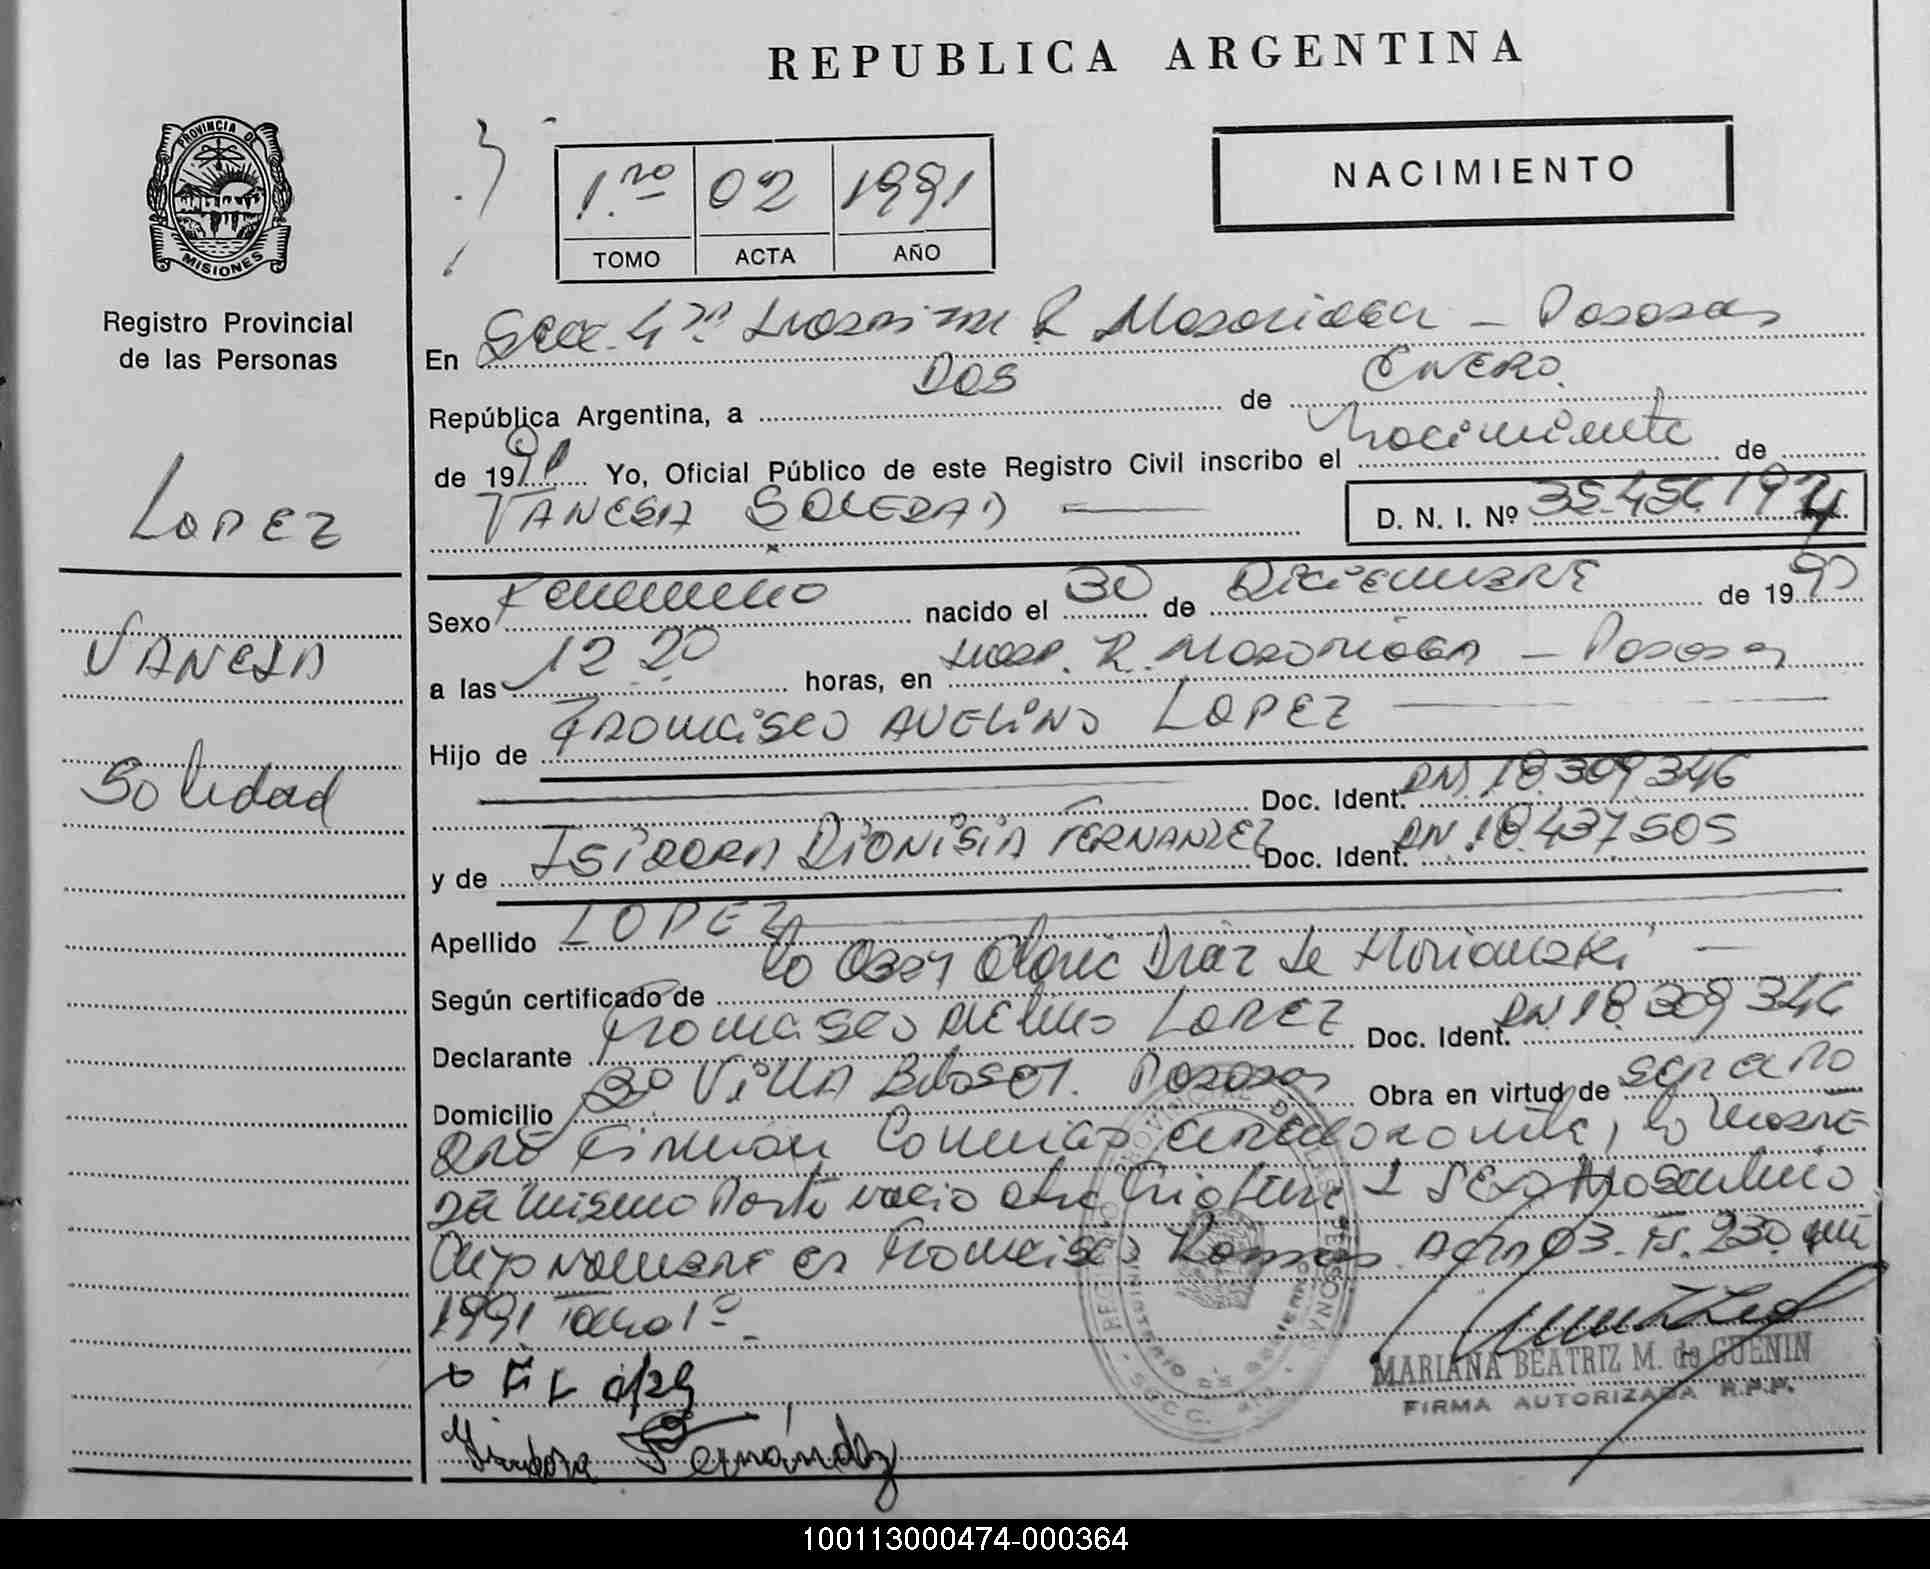 REPUBLICA ARGENTINA
PROVINCIA DE
MISIONES
Registro Provincial
de las Personas
1.ro 02 1991
TOMO ACTA AÑO
NACIMIENTO
En Secc. 4ta R Madariaga - Posadas
República Argentina, a DOS de ENERO.
de 1991 Yo, Oficial Público de este Registro Civil inscribo el Nacimiento de
VANESA SOLEDAD D. N. I. Nº 35.456.194
LOPEZ
VANESA
Soledad
Sexo Femenino nacido el 30 de DICIEMBRE de 1990
a las 12 20 horas, en Hosp. R. Madariaga - Posadas
Hijo de FRANCISCO AVELINO LOPEZ
Doc. Ident. DNI. 18.309346
y de ISIDORA DIONISIA FERNANDEZ Doc. Ident. DNI. 18.437505
Apellido LOPEZ
Según certificado de la Obst DIAZ de
Declarante FRANCISCO AVELINO LOPEZ Doc. Ident. DNI 18.309 346
Domicilio VILLA Posadas Obra en virtud de ser padre
QUE FIRMAN CONMIGO la MADRE
DEL MISMO Parto nacio otra Criatura SEXO Masculino
CUYO NOMBRE es Francisco Ramon. Acta 03. Fs. 230.
1991 Tomo 1º
Isidora Fernández
MARIANA BEATRIZ M. de GUENIN
FIRMA AUTORIZADA R.P.P.
100113000474-000364